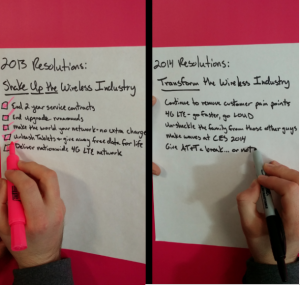 2013 Resolutions:
Shake Up the Wireless Industry
End 2 year service contracts
End upgrade
make the world your network - no extra charge
Unleash Tablets - give away free data for life
Deliver nationwide 4G LTE network
2014 Resolutions:
Transform the Wireless Industry
Continue to remove customer pain points
4G LTE - go faster, go LOUD
Unshackle the family from those other guys
Make waves at CES 2014
Give AT&T a break... or not